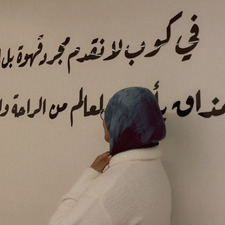 في كوب لا نقدم مجرد قهوة بل
مذاق لعالم من الراحة